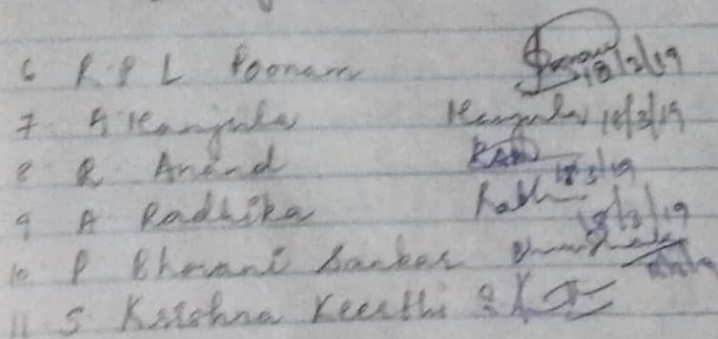 6 R P L Poonam 18/3/19
7 A Manjula Manjula 18/3/19
8 R Anand 18/3/19
9 A Radhika 18/3/19
10 P Bhavani Sankar
11 S Krishna Keerthi